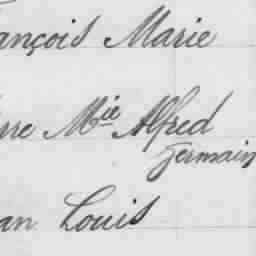 ançois Marie
rre Mie Alfred
Germain
an Louis